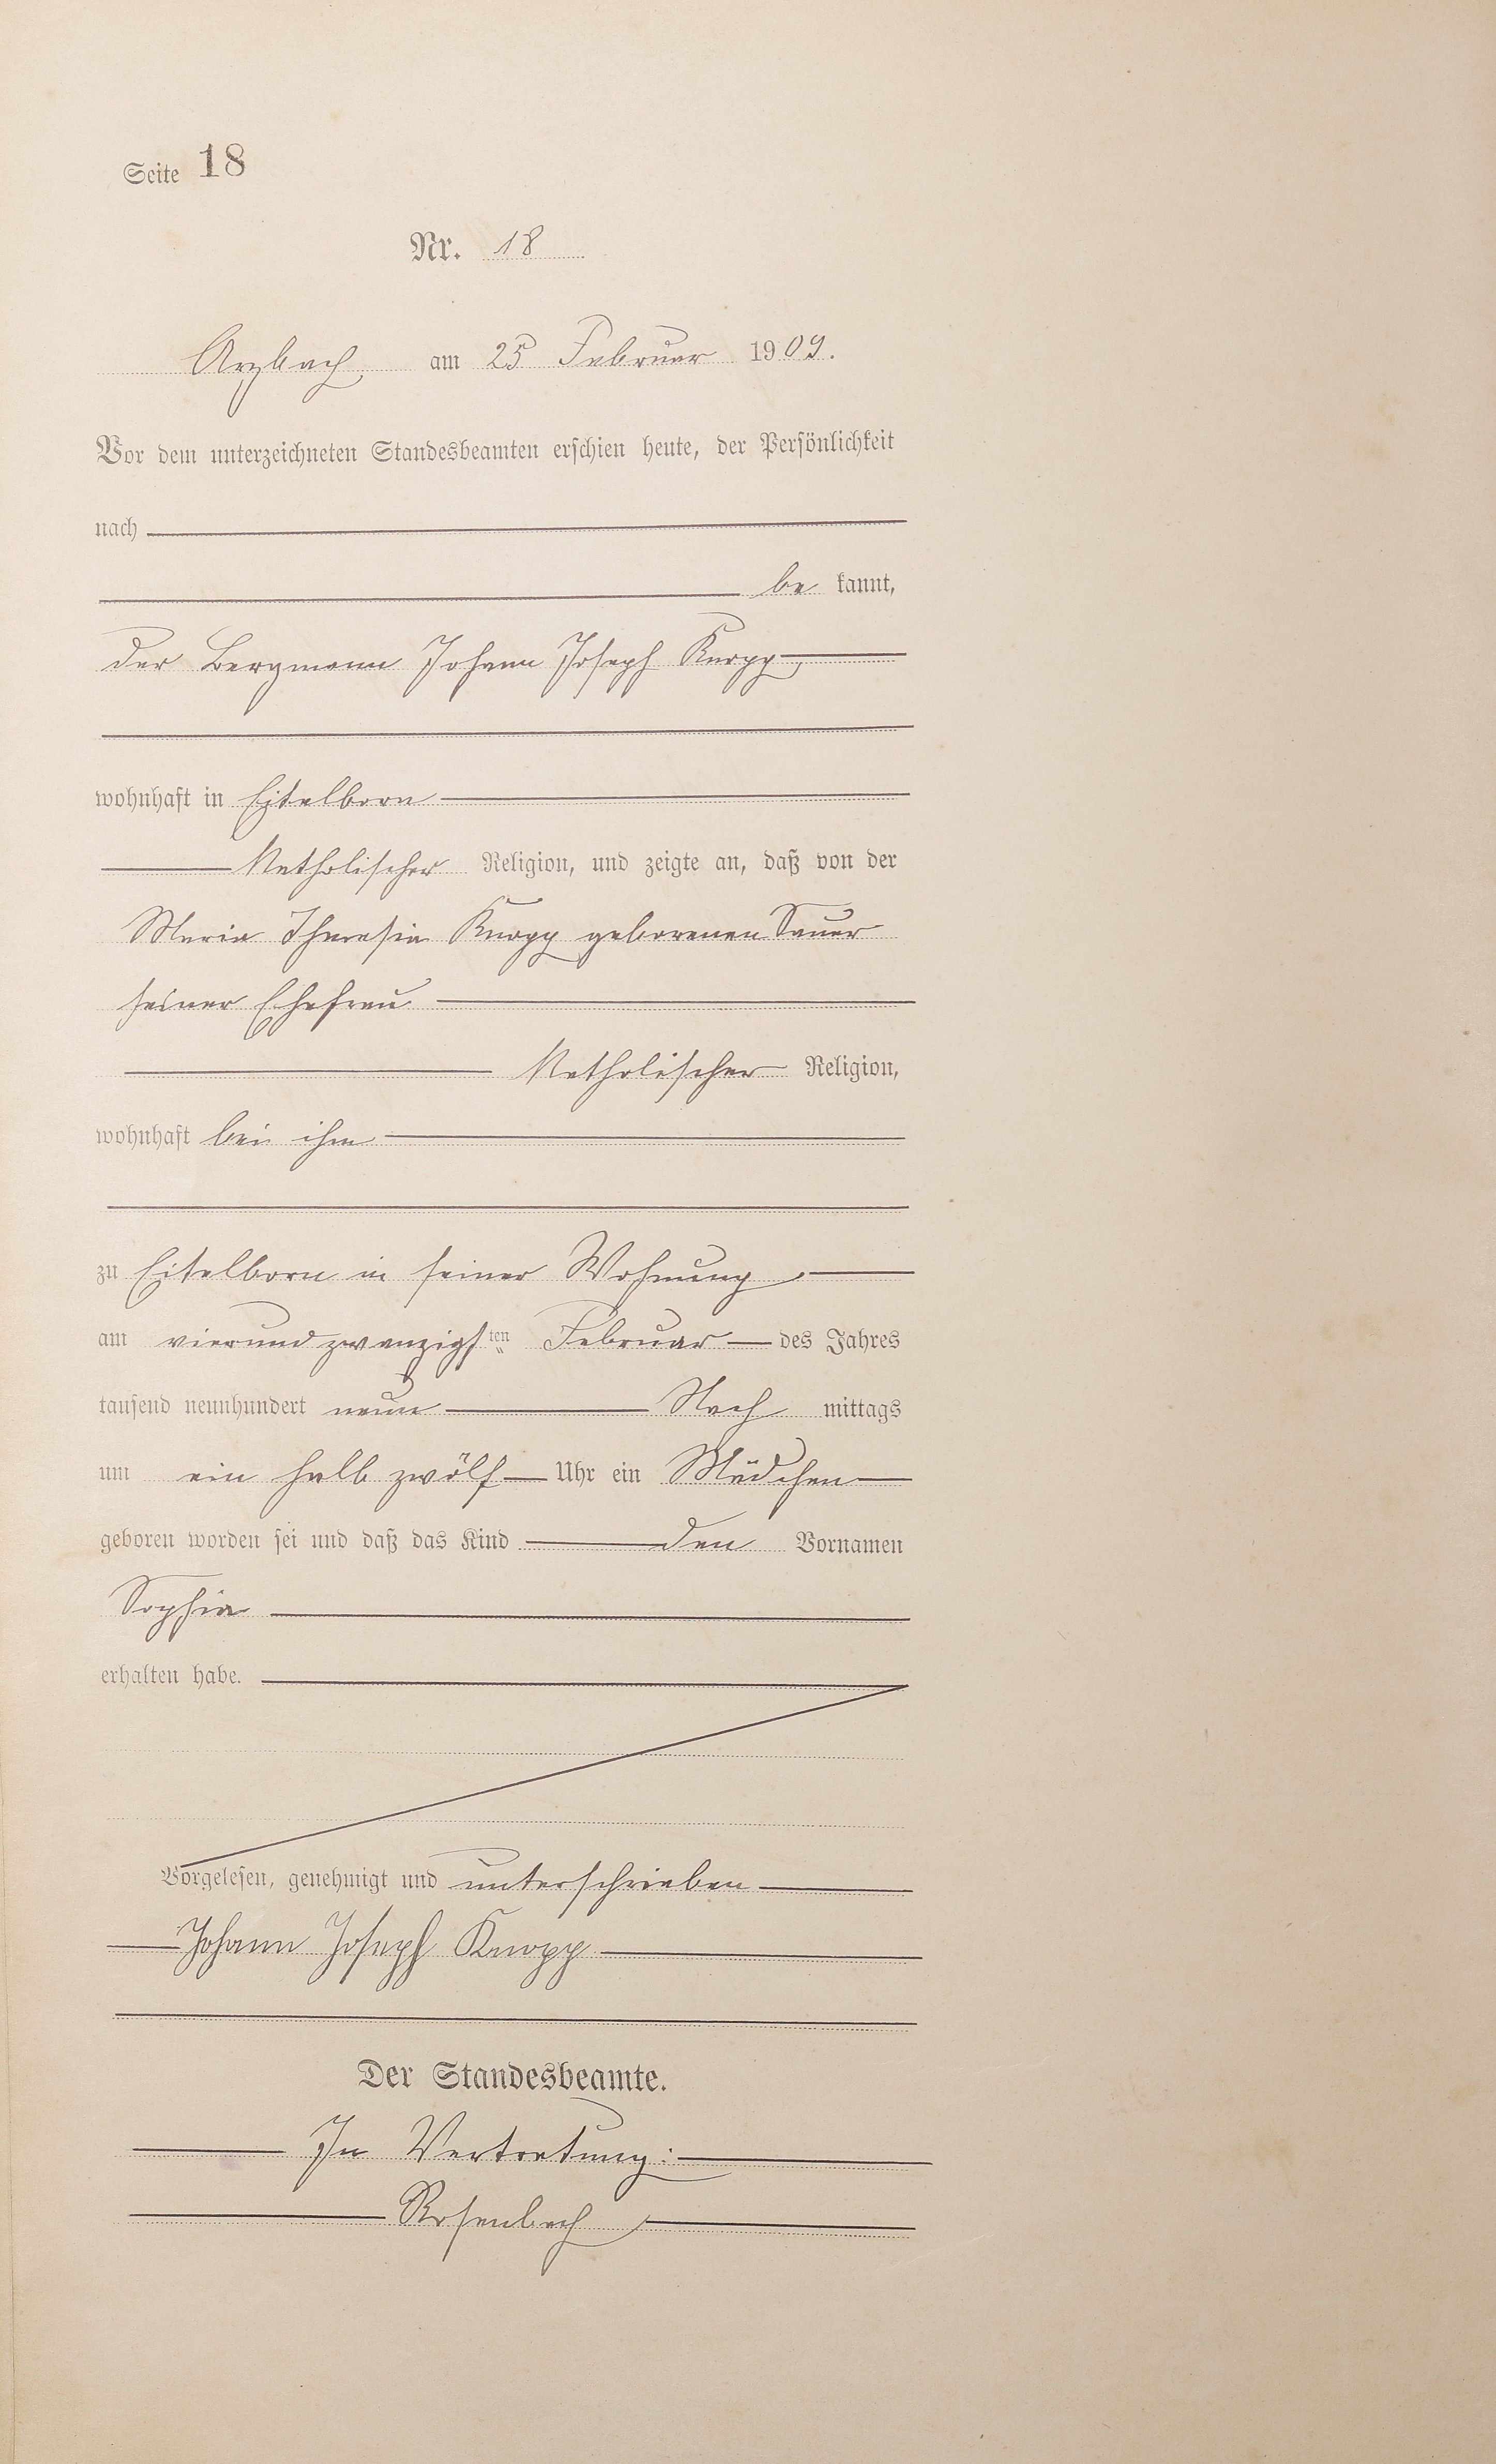 Seite 18
Nr. 18
Arzbach, am 25 Februar 1909.
Vor dem unterzeichneten Standesbeamten erschien heute, der Persönlichkeit
nach
be kannt,
der Bergmann Johann Joseph Knopp,
wohnhaft in Eitelborn
Katholischer Religion, und zeigte an, daß von der
Maria Theresia Knopp geborenen Sauer
seiner Ehefrau
Katholischer Religion,
wohnhaft bei ihm
zu Eitelborn in seiner Wohnung,
am vierundzwanzigsten Februar des Jahres
tausend neunhundert neun Nach mittags
um ein halb zwölf Uhr ein Mädchen
geboren worden sei und daß das Kind den Vornamen
Sophia
erhalten habe.
Vorgelesen, genehmigt und unterschrieben
Johann Joseph Knopp
Der Standesbeamte.
In Vertretung:
Rosenbach